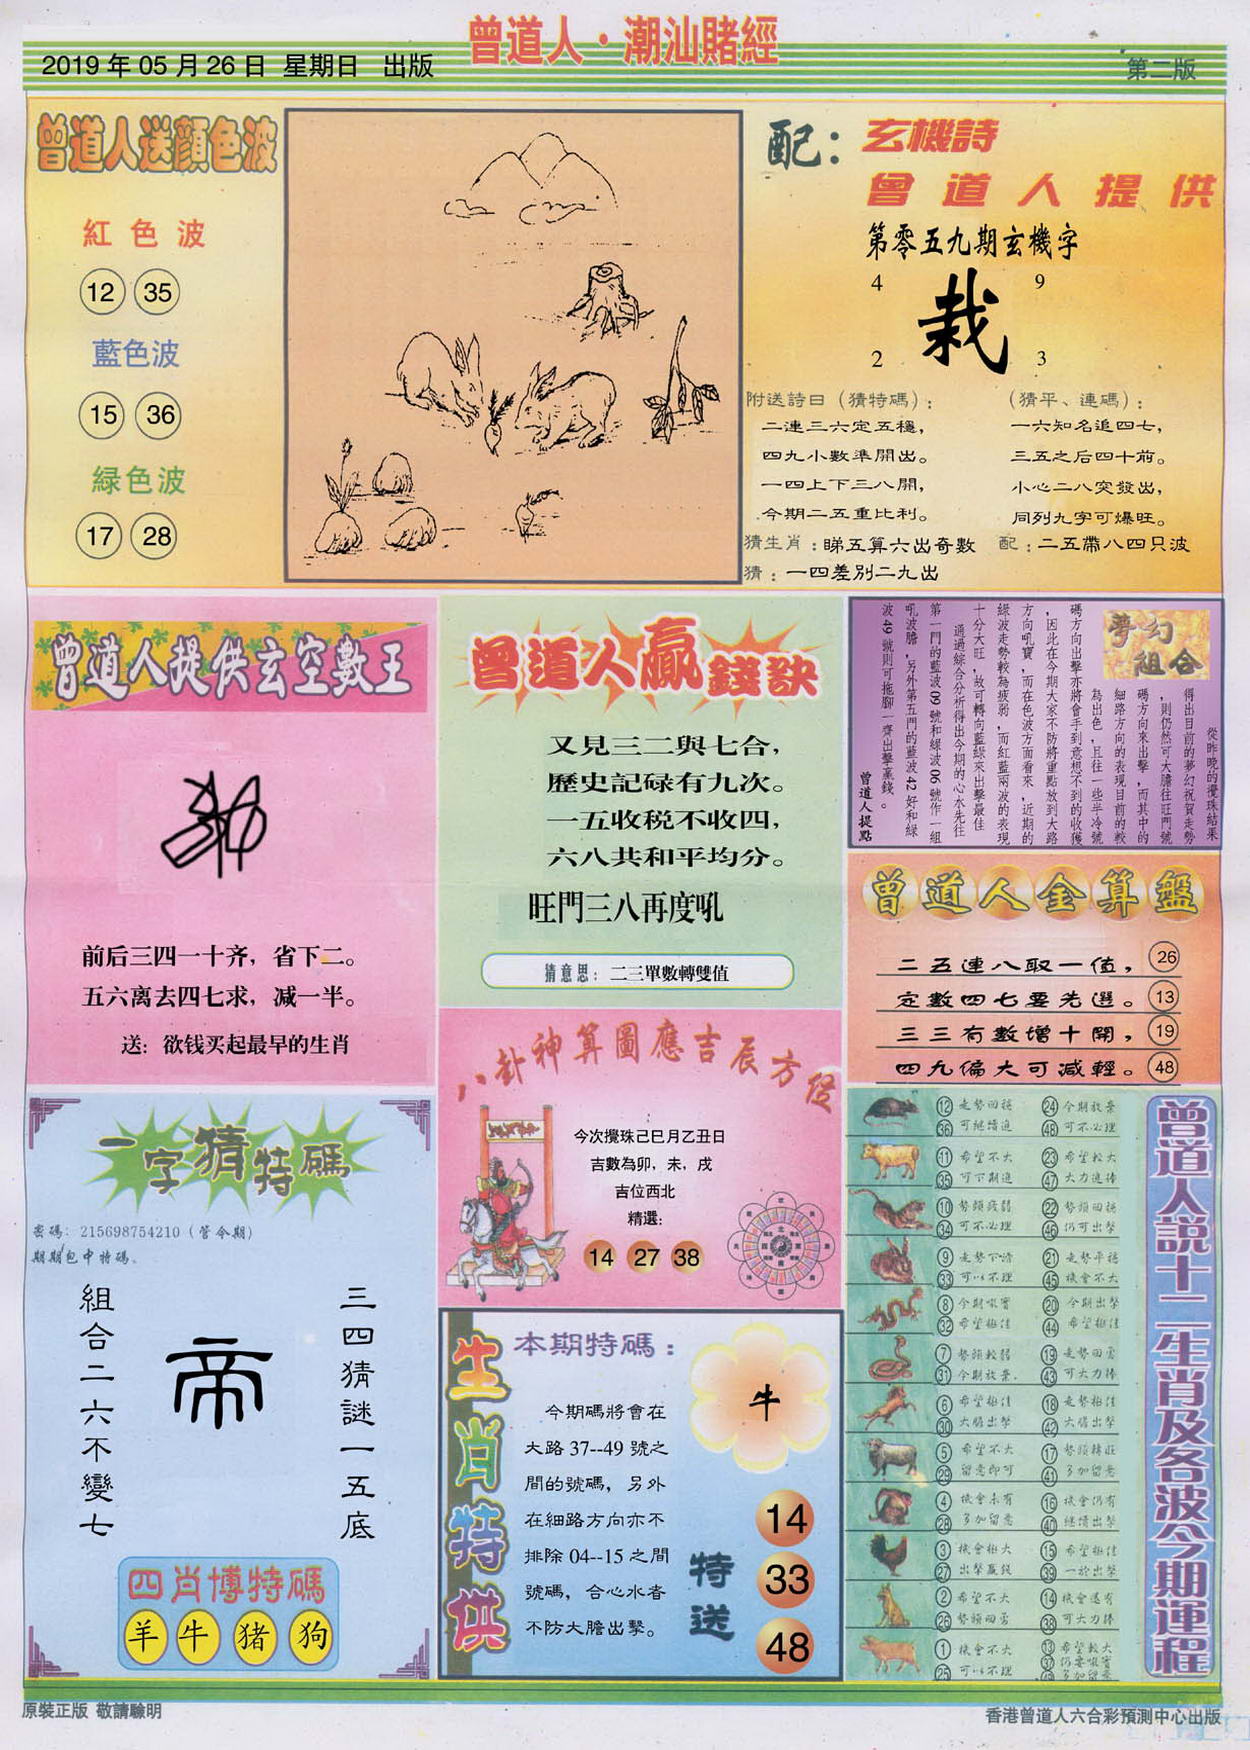 曾道人·潮汕賭經
2019 年 05 月 26 日 星期日 出版
第二版
曾道人送顏色波
紅色波
12 35
藍色波
15 36
緑色波
17 28
配：玄機詩
曾道人提供
第零五九期玄機字
4 9
栽
2 3
附送詩曰（猜特碼）：
二連三六定五穩，
四九小數準開出。
一四上下三八開，
今期二五重比利。
（猜平、連碼）：
一六知名追四七，
三五之后四十前。
小心二八突發出，
同列九字可爆旺。
猜生肖：睇五算六出奇數
配：二五帶八四只波
猜：一四差別二九出
曾道人提供玄空數王
前后三四一十齐，省下二。
五六离去四七求，减一半。
送：欲钱买起最早的生肖
曾道人贏錢訣
又見三二與七合，
歷史記碌有九次。
一五收税不收四，
六八共和平均分。
旺門三八再度吼
猜意思：二三單數轉雙值
夢幻組合
從昨晚的攪珠結果
得出目前的夢幻祝賀走勢
，則仍然可大膽往旺門號
碼方向來出擊，而其中的
細路方向的表現目前的較
為出色，且往一些半冷號
碼方向出擊亦將會手到意想不到的收獲
，因此在今期大家不防將重點放到大路
方向吼寶，而在色波方面看來，近期的
綠波走勢較為疲弱，而紅藍兩波的表現
十分大旺，故可轉向藍綠來出擊最佳
通過綜合分析得出今期的心水先往
第一門的藍波09號和綠波06號作一組
吼波膽，另外第五門的藍波42好和綠
波49號則可拖腳一齊出擊贏錢。
曾道人提點
曾道人金算盤
二五連八取一值， 26
定數四七要先選。 13
三三有數增十開， 19
四九偏大可減輕。 48
八卦神算圖應吉辰方位
今次攪珠己巳月乙丑日
吉數為卯，未，戌
吉位西北
精選：
14 27 38
一字猜特碼
密碼：215698754210（管令期）
期期包中特碼。
三四猜謎一五底
帝
組合二六不變七
四肖博特碼
羊 牛 猪 狗
生肖特供
本期特碼：
牛
今期碼將會在
大路 37--49 號之
間的號碼，另外
在細路方向亦不
排除 04--15 之間
號碼，合心水者
不防大膽出擊。
特送
14
33
48
曾道人說十二生肖及各波今期運程
12 走勢回穩 24 今期放棄
36 可繼續追 48 可不必理
11 希望不大 23 希望較大
35 可下期追 47 大力追捧
10 勢頭疲弱 22 勢頭回穩
34 可不必理 46 仍可出擊
9 走勢下滑 21 走勢平穩
33 可以不理 45 機會不大
8 今期吸寶 20 今期出擊
32 希望極佳 44 希望極佳
7 勢頭較弱 19 走勢回勇
31 今期放棄. 43 可大力捧
6 希望極佳 18 走勢極佳
30 大膽出擊 42 大膽出擊
5 希望不大 17 勢頭轉旺
29 留意即可 41 多加留意
4 機會未有 16 機會仍有
28 多加留意 40 繼續出擊
3 機會極大 15 希望極佳
27 出擊贏錢 39 一於出擊
2 希望不大 14 機會還有
26 勢頭回勇 38 可大力捧
1 機會不大 13 希望較大
25 可以不理 37 仍要吸寶
49 多加留意
原裝正版 敬請驗明
香港曾道人六合彩預測中心出版